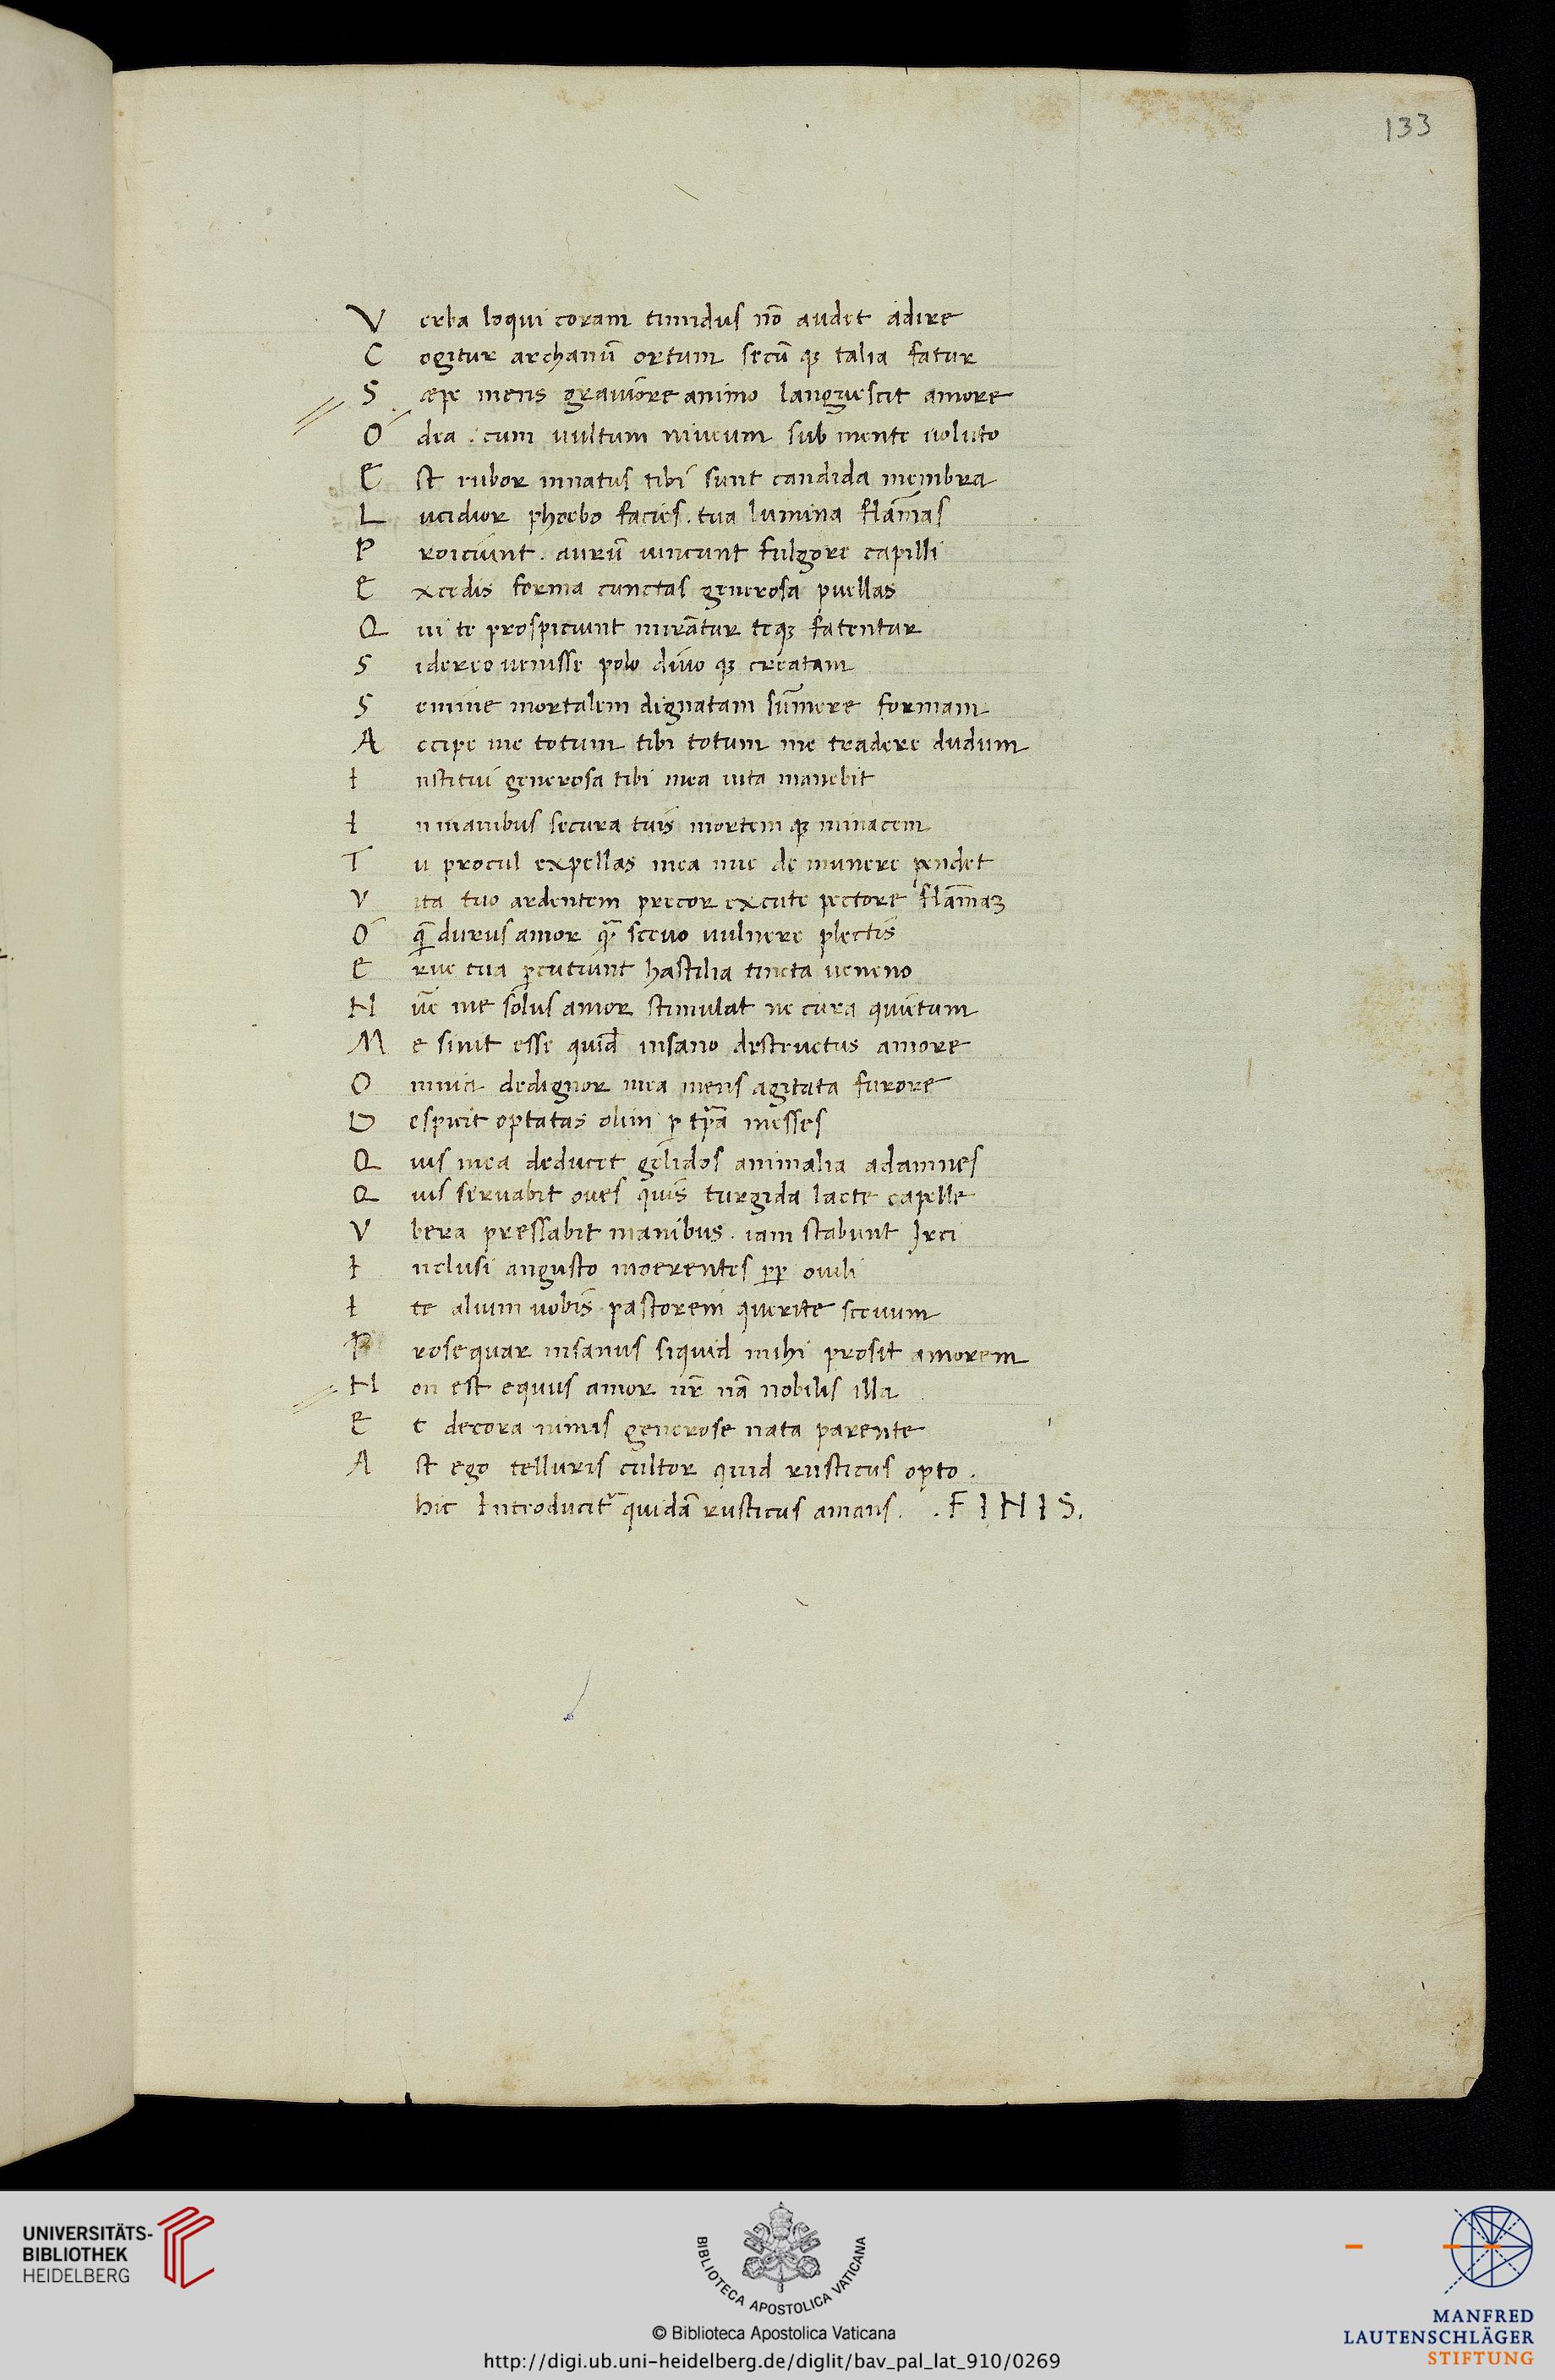 133
Verba loqui coram timidus nõ audet adire
Cogitur archanũ ortum secũ qꝫ talia fatur
Sæpe mens graviore animo languescit amore
Ó dea . cum uultum niueum sub mente uoluto
Est rubor innatus tibi sunt candida membra
Lucidior phoebo facies . tua lumina flam̃as
Proiciunt . aurũ uincunt fulgore capilli
Excedis forma cunctas generosa puellas
Qui te prospiciunt mirãtur teqꝫ fatentur
Sidereo uenisse polo diuo qꝫ creatam
Semine mortalem dignatam sum̃ere formam
Accipe me totum tibi totum me tradere dudum
Institui generosa tibi mea uita manebit
In manibus secura tuis mortem qꝫ minacem
Tu procul expellas mea nuc de munere pendet
Vita tuo ardentem precor excute pectore flam̃aꝫ
Ó q̃ durus amor q̃ sceuo uulnere plectis
Erue tua ꝑcutiunt hastilia tincta ueneno
Nũc me solus amor stimulat ne cura quietum
Me sinit esse quid insano destructus amore
Omnia dedignor mea mens agitata furore
Despicit optatas olim ꝑ tp̃a messes
Quis mea deducet gelidos animalia adamnes
Quis seruabit oues quis turgida lacte capelle
Vbera pressabit manibus . iam stabunt Irci
Inclusi angusto moerentes ꝑꝑ ouili
Ite alium uobis pastorem querite sceuum
Prosequar insanus siquid mihi prosit amorem
Non est equus amor nr̃ nã nobilis illa
Et decora nimis generose nata parente
Ast ego telluris cultor quid rusticus opto .
hic Introducit᷑ quidã rusticus amans . . FINIS.
UNIVERSITÄTS-
BIBLIOTHEK
HEIDELBERG
BIBLIOTECA APOSTOLICA VATICANA
© Biblioteca Apostolica Vaticana
http://digi.ub.uni-heidelberg.de/diglit/bav_pal_lat_910/0269
MANFRED
LAUTENSCHLÄGER
STIFTUNG